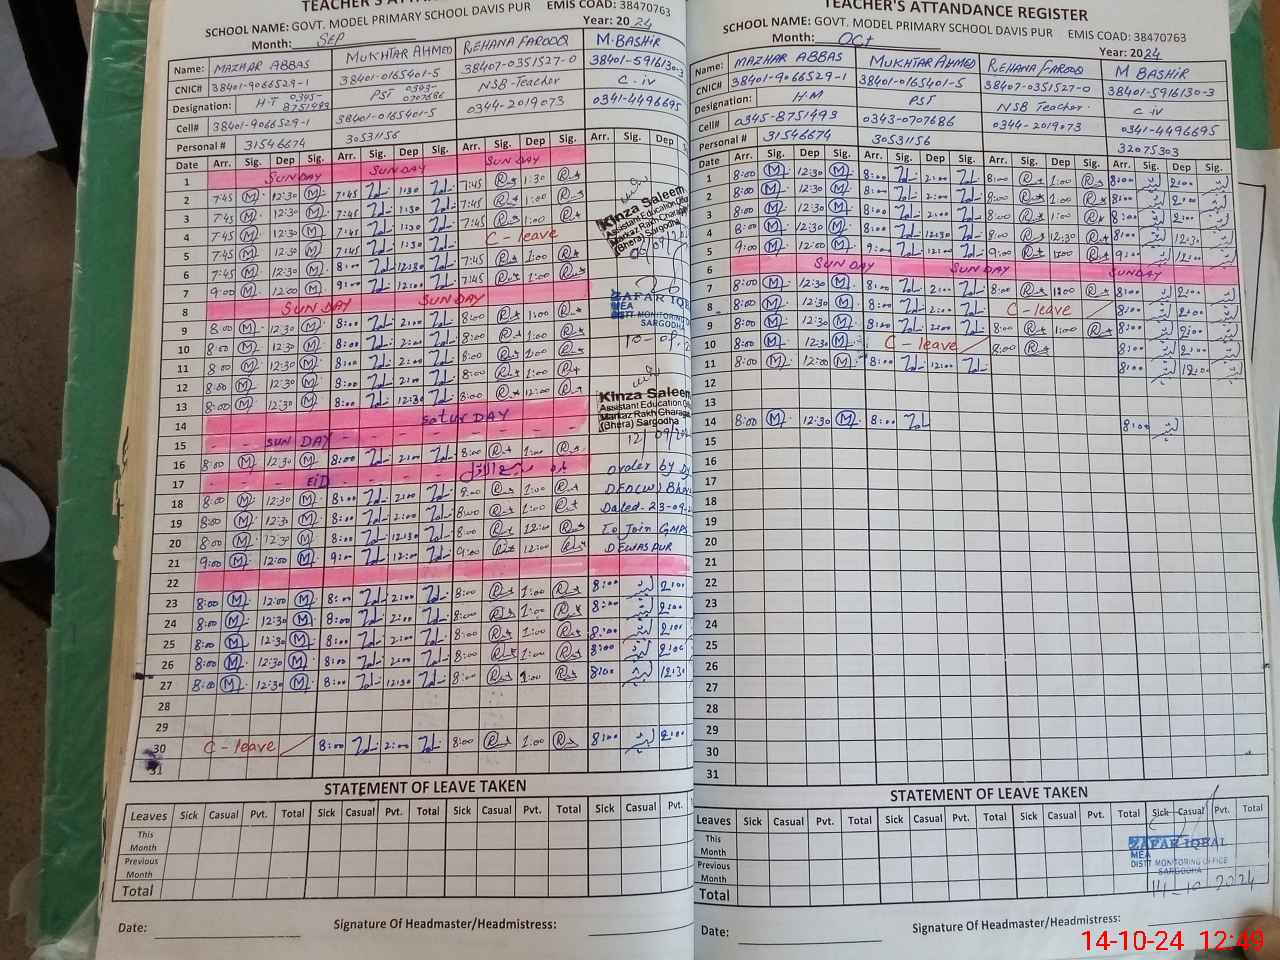 TEACHER'S ATTANDANCE REGISTER
SCHOOL NAME: GOVT. MODEL PRIMARY SCHOOL DAVIS PUR EMIS COAD: 38470763
Month: SEP Year: 2024
Name: MAZHAR ABBAS MUKHTAR AHMED REHANA FAROOQ M.BASHIR
CNIC# 38401-9066529-1 38401-0165401-5 38407-0351527-0 38401-5916130-3
Designation: H-T 0345-8751493 PST 0343-0707686 NSB-Teacher C-iv
Cell# 38401-9066529-1 38401-0165401-5 0344-2019073 0341-4496695
Personal # 31546674 30531156
Date Arr. Sig. Dep Sig. Arr. Sig. Dep Sig. Arr. Sig. Dep Sig. Arr. Sig. Dep
1 SUNDAY SUNDAY SUNDAY
2 7:45 M 12:30 M 7:45 1:30 7:45 1:30
3 7:45 M 12:30 M 7:45 1:30 7:45 1:00
4 7:45 M 12:30 M 7:45 1:30 7:45 1:00
5 7:45 M 12:30 M 7:45 1:30 C-leave
6 7:45 M 12:30 M 8:00 12:30 7:45 1:00
7 9:00 M 12:00 M 9:00 12:00 7:45 1:00
8 SUNDAY SUNDAY
9 8:00 M 12:30 M 8:00 2:00 8:00 1:00
10 8:00 M 12:30 M 8:00 2:00 8:00 1:00
11 8:00 M 12:30 M 8:00 2:00 8:00 1:00
12 8:00 M 12:30 M 8:00 2:00 8:00 1:00
13 8:00 M 12:30 M 8:00 12:30 8:00 12:00
14 SatURDAY
15 SUNDAY
16 8:00 M 12:30 M 8:00 2:00 8:00 1:00
17 EiD
18 8:00 M 12:30 M 8:00 2:00 9:00 1:00
19 8:00 M 12:30 M 8:00 2:00 8:00 1:00
20 8:00 M 12:30 M 8:00 12:30 8:00 12:00
21 9:00 M 12:00 M 9:00 12:00 9:00 12:00
22
23 8:00 M 12:00 M 8:00 2:00 8:00 1:00 8:00 2:00
24 8:00 M 12:30 M 8:00 2:00 8:00 1:00 8:00 2:00
25 8:00 M 12:30 M 8:00 2:00 8:00 1:00 8:00 2:00
26 8:00 M 12:30 M 8:00 2:00 8:00 1:00 8:00 2:00
27 8:00 M 12:30 M 8:00 12:30 8:00 1:00 8:00 12:30
28
29
30 C-leave 8:00 2:00 8:00 1:00 8:00 2:00
31
Kinza Saleem
Assistant Education
Markaz Rakh Charagah
(Bhera) Sargodha
ZAFAR IQBAL
MEA
DISTT MONITORING
SARGODHA
Kinza Saleem
Assistant Education
Markaz Rakh Charagah
(Bhera) Sargodha
order by
Dated-23-09-2
To Join GMPS
DEWASPUR
STATEMENT OF LEAVE TAKEN
Leaves Sick Casual Pvt. Total Sick Casual Pvt. Total Sick Casual Pvt. Total Sick Casual Pvt.
This Month
Previous Month
Total
Date: Signature Of Headmaster/Headmistress:
TEACHER'S ATTANDANCE REGISTER
SCHOOL NAME: GOVT. MODEL PRIMARY SCHOOL DAVIS PUR EMIS COAD: 38470763
Month: Oct Year: 2024
Name: MAZHAR ABBAS MUKHTAR AHMED REHANA FAROOQ M BASHIR
CNIC# 38401-9066529-1 38401-0165401-5 38407-0351527-0 38401-5916130-3
Designation: H-M PST NSB Teacher C-iv
Cell# 0345-8751493 0343-0707686 0344-2019073 0341-4496695
Personal # 31546674 30531156 32075303
Date Arr. Sig. Dep Sig. Arr. Sig. Dep Sig. Arr. Sig. Dep Sig. Arr. Sig. Dep Sig.
1 8:00 M 12:30 M 8:00 2:00 8:00 1:00 8:00 2:00
2 8:00 M 12:30 M 8:00 2:00 8:00 1:00 8:00 2:00
3 8:00 M 12:30 M 8:00 2:00 8:00 1:00 8:00 2:00
4 8:00 M 12:30 M 8:00 12:30 8:00 12:30 8:00 12:30
5 9:00 M 12:00 M 9:00 12:00 9:00 1:00 9:00 12:00
6 SUNDAY SUNDAY SUNDAY
7 8:00 M 12:30 M 8:00 2:00 8:00 1:00 8:00 2:00
8 8:00 M 12:30 M 8:00 2:00 C-leave 8:00 2:00
9 8:00 M 12:30 M 8:00 2:00 8:00 1:00 8:00 2:00
10 8:00 M 12:30 M C-leave 8:00 8:00 2:00
11 8:00 M 12:00 M 8:00 12:00 8:00 12:00
12
13
14 8:00 M 12:30 M 8:00 8:00
15
16
17
18
19
20
21
22
23
24
25
26
27
28
29
30
31
STATEMENT OF LEAVE TAKEN
Leaves Sick Casual Pvt. Total Sick Casual Pvt. Total Sick Casual Pvt. Total Sick Casual Pvt. Total
This Month
Previous Month
Total
ZAFAR IQBAL
MEA
DISTT MONITORING OFFICE
SARGODHA
14-10-2024
Date: Signature Of Headmaster/Headmistress:
14-10-24 12:49